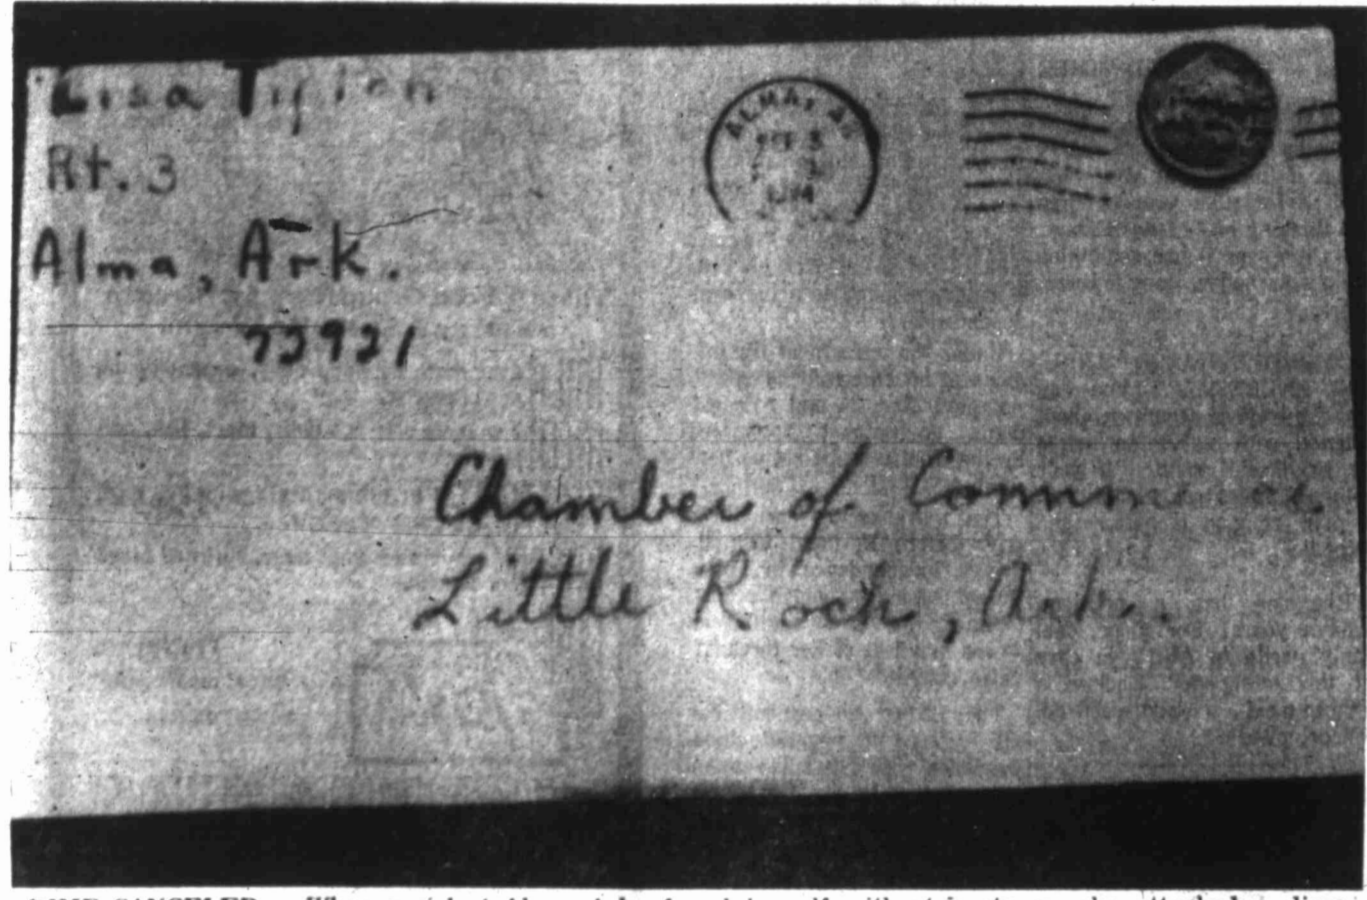 Lisa Tipton
Rt. 3
Alma, Ark.
72921
ALMA, AR
Chamber of Commerce
Little Rock, Ark.